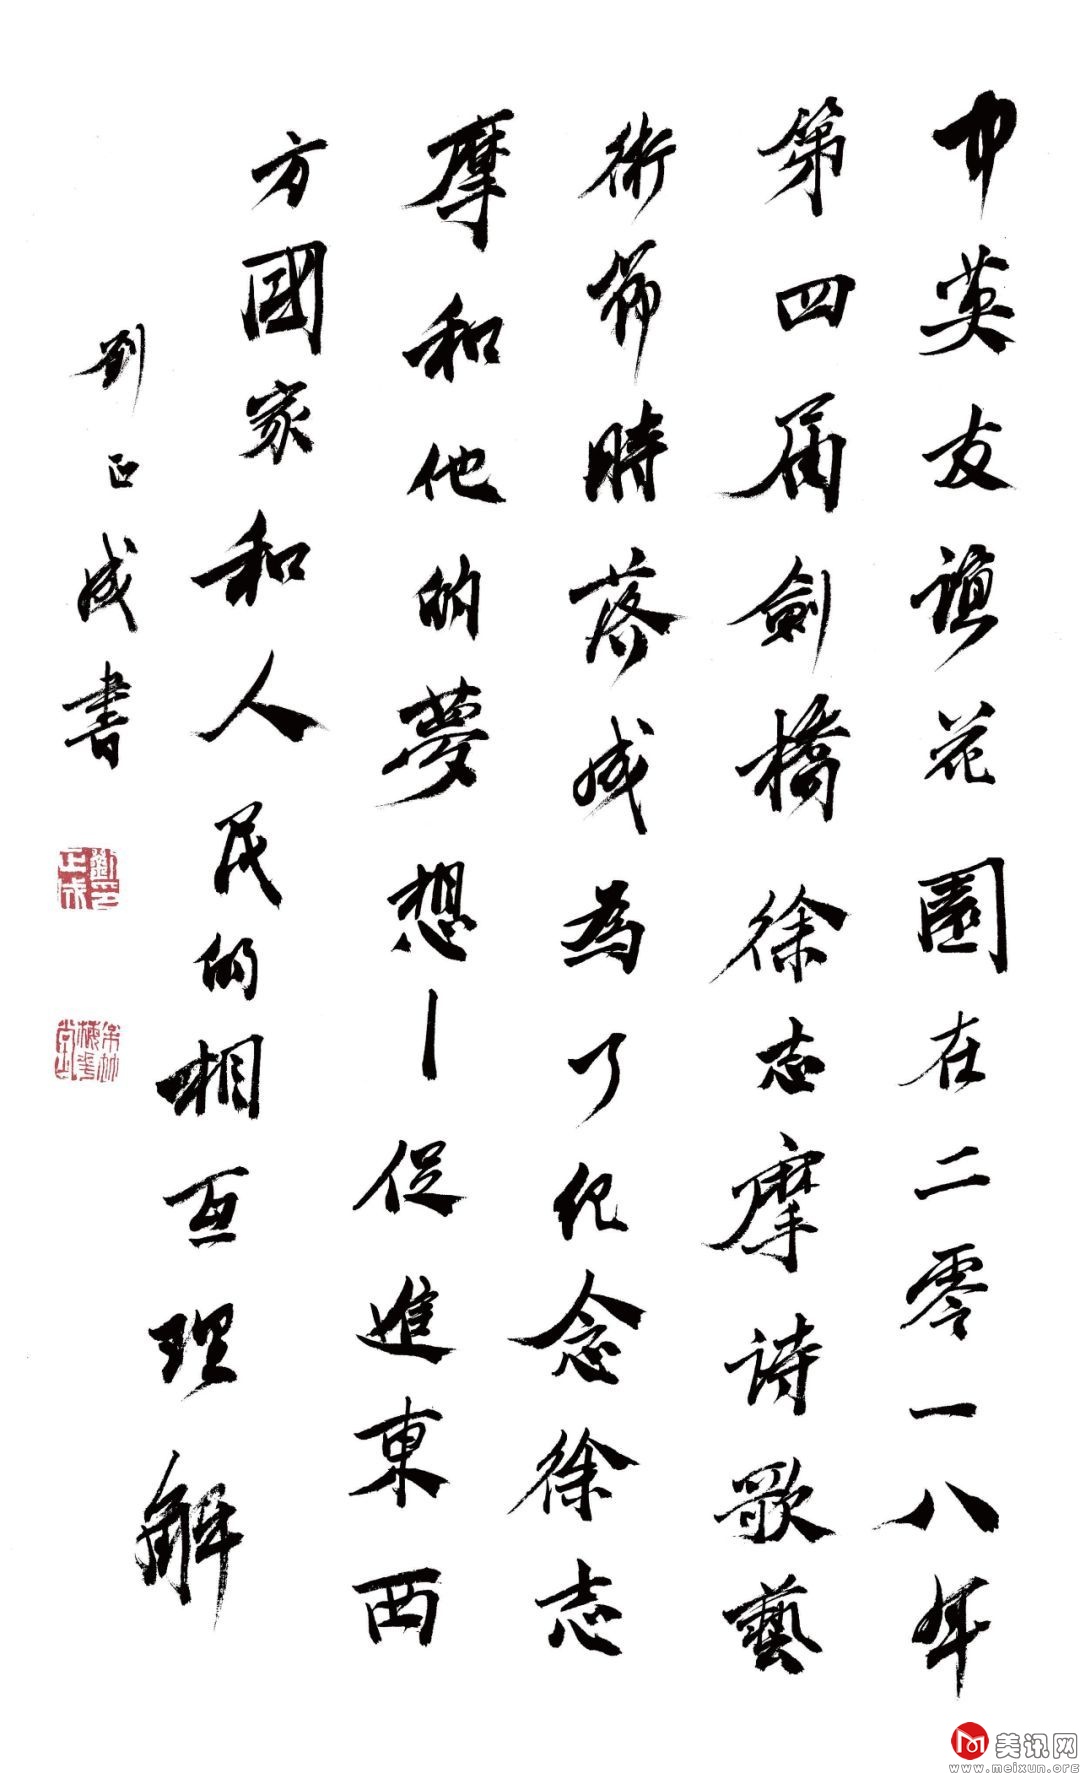 中英友誼花園在二零一八年
第四届劍橋徐志摩詩歌藝
術節時落成為了纪念徐志
摩和他的夢想—促進東西
方國家和人民的相互理解
劉正成書
美讯网
www.meixun.org